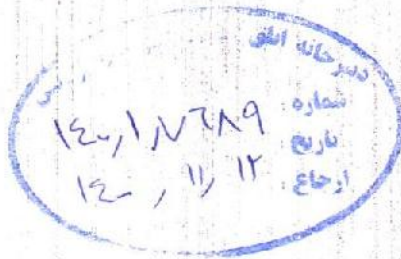 دبیرخانه اتاق
شماره: ۱۴۰۰/۱/۷۶۸۹
تاریخ: ۱۴۰۰/۱۱/۱۲
ارجاع: